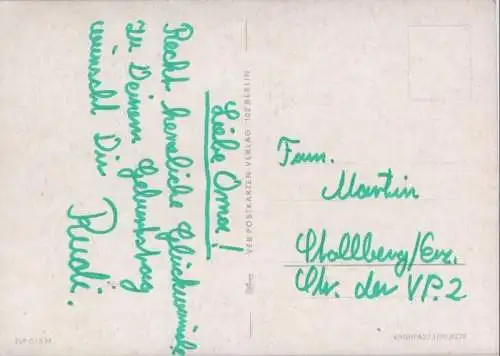 Liebe Oma!
Recht herzliche Glückwünsche
zu Deinem Geburtstag
wünscht Dir
Rudi.
VEB POSTKARTEN-VERLAG · 102 BERLIN
Fam.
Martin
Stollberg/Erz.
Str. der VP. 2